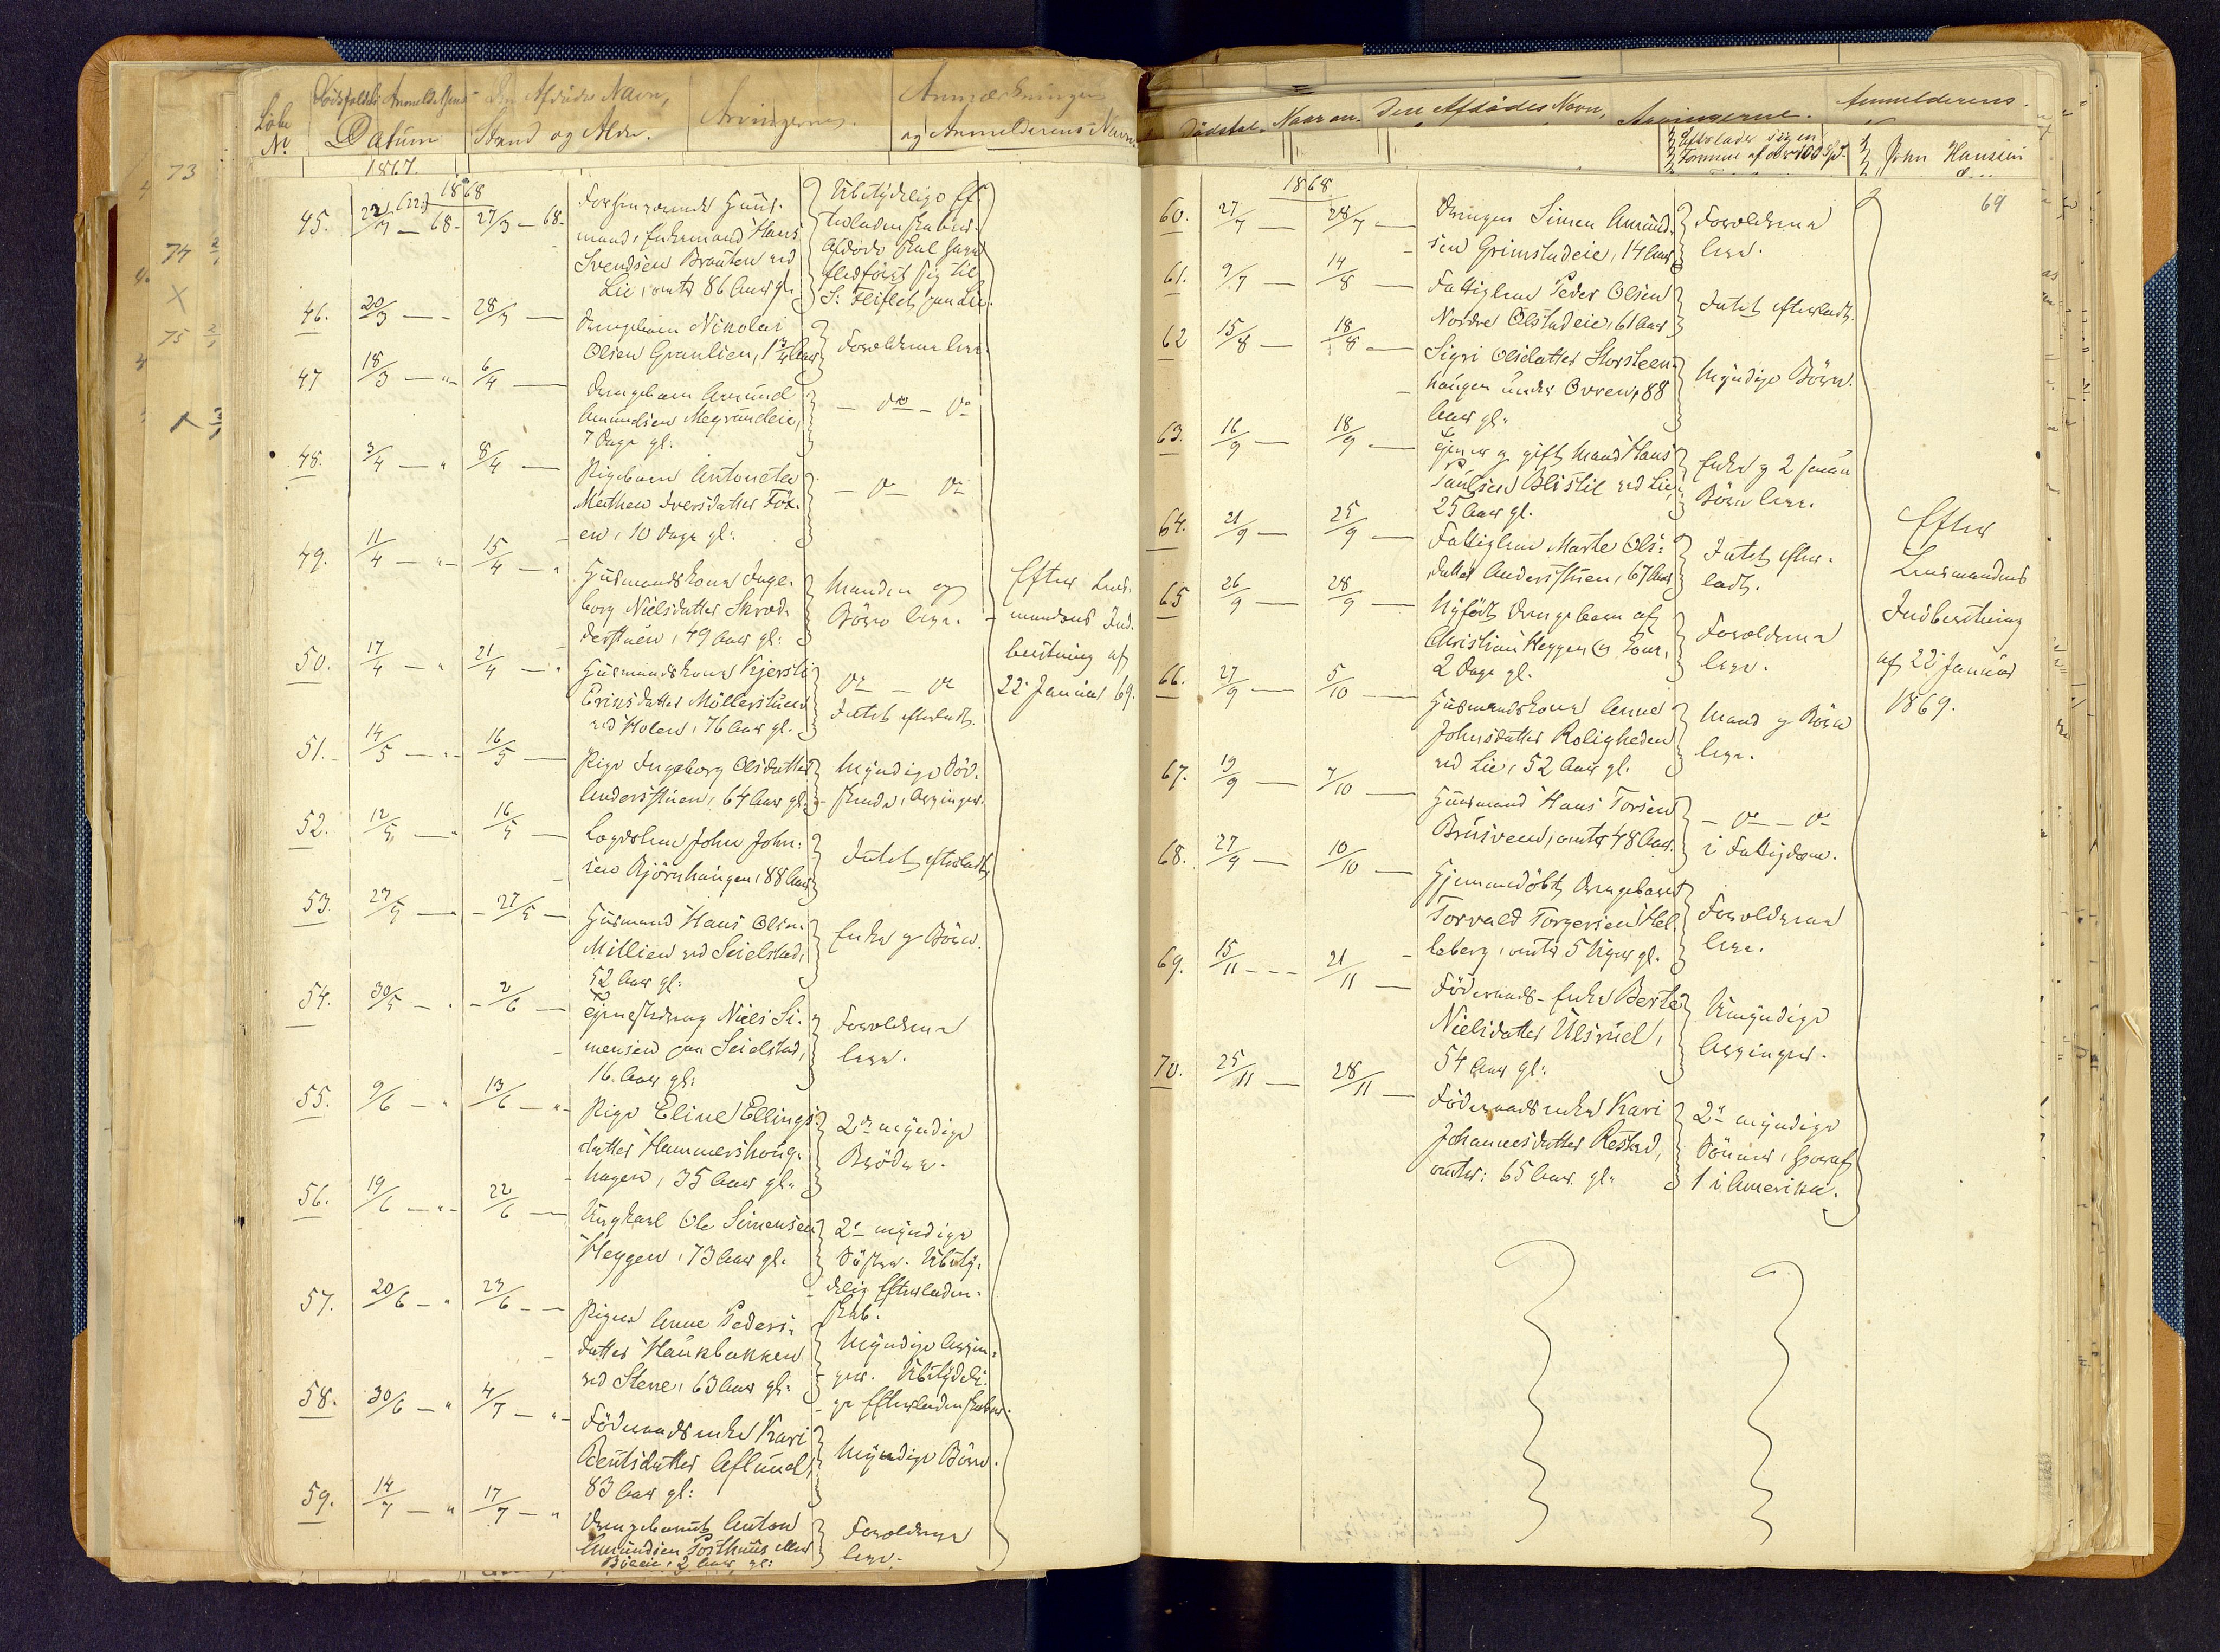 Løbe
No
Dødsfaldets Anmeldelsens
Datum
Den Afdødes Navn,
Stand og Alder.
Arvingerne.
Anmærkninger
og Anmelderens Navn.
1867.
1868
45. 22/3 - 68 - 27/3 - 68 -
Forhenværende Huus-
mand, Enkemand Hans
Svendsen Braaten ved
Lie, omtr 86 Aar gl.
Ubetydelige Ef-
terladenskaber.
Afdøde skal have
S: Fleiflet paa Lie.
46. 20/3 - - 28/3 -
Drengebarn Nikolai
Olsen Granlien, 1 3/4 Aar
Forældrene leve.
47 18/3 - " - 6/4 -
Drengebarn Amund
Amundsen Megrundeie,
7 Dage gl.
- do - do
48. 3/4 - " 8/4 -
Pigebarn Antonette
Mathea Iversdatter
en, 10 Dage gl:
- do do
49. 11/4 - " - 15/4 - "
Huusmandskone Inge-
borg Nielsdatter Skræd-
derstuen, 49 Aar gl:
Manden og
Børn leve.
Efter Lens-
mandens Ind-
beretning af
22 Januar 69.
50. 17/4 - " 21/4 - "
Huusmandskone Kjersti
Eriksdatter Möllerstuen
ved Holen, 76 Aar gl.
do - do
Intet efterladt.
51. 14/5 - " - 16/5 -
Pige Ingeborg Olsdatter
Andersstuen, 64 Aar gl.
Myndige Sød-
skende, Arvinger.
52. 12/5 - " 16/5 -
Lægdslem John John-
sen Bjørnhaugen, 88 Aar
Intet efterladt.
53. 27/5 - " - 27/5 -
Huusmand Hans Olsen
Millien ved Seielstad,
52 Aar gl:
Enke og Börn.
54. 30/5 - " - 2/6 -
Tjenestedreng Niels Si-
mensen paa Seielstad,
16. Aar gl:
Forældrene
leve.
55. 9/6 - " 13/6 - " -
Pige Eline Ellings-
datter Hammershoug-
hagen, 35 Aar gl.
2de myndige
Brödre.
56. 19/6 - " - 22/6 -
Ungkarl Ole Simensen
Heggen, 73 Aar gl.
2de myndige
Søstre. Ubety-
delig Efterladen-
skab.
57. 20/6 - " 23/6 - -
Pigen Anne Peders-
datter Haukbakken
ved Stene, 63 Aar gl:
Myndige Arvin-
ger. Ubetydeli-
ge Efterladenskaber.
58. 30/6 - " 4/7 - " -
Föderaadsenke Kari
Bentsdatter Aflund,
83 Aar gl:
Myndige Börn.
59. 14/7 - " 17/7 - "
Drengebarnet Anton
Amundsen Posthuus eller
2 Aar gl:
Forældrene
leve.
Dødsfal. Naar an. Den Afdødes Navn, Arvingerne. Anmelderens
Efterlader sig en
Formue af over 100 Spd.
John Hansen
69
1868
60. 27/7 - 28/7 -
Drengen Simen Amund-
sen Grimstadeie, 14 Aar
Forældrene
leve.
61. 9/7 - 14/8 -
Fattiglem Peder Olsen
Nordre Ølstadeie, 61 Aar
Intet efterladt.
62 15/8 - 18/8 -
Sigri Olsdatter Storsteen-
haugen under Ovren, 88
Aar gl.
Myndige Börn.
63. 16/9 - 18/9 -
Tjener og gift Mand Hans
Paulsen Blistil ved Lie,
25 Aar gl.
Enke og 2 smaa
Börn leve.
64. 21/9 - 25/9 -
Fattiglem Marte Ols-
datter Andersstuen, 67 Aar
Intet efter-
ladt.
Efter
Lensmandens
Indberetning
af 22 Januar
1869.
65 26/9 - 28/9 -
Nyfødt Drengebarn af
Christian Heggen og Kone,
2 Dage gl.
Forældrene
leve.
66. 27/9 - 5/10 -
Huusmandskone Anne
Johnsdatter Roligheden
ved Lie, 52 Aar gl.
Mand og Börn
leve.
67. 19/9 - 7/10 -
Huusmand Hans Torsen
Brusveen, omtr 48 Aar.
- do - do
i Fattigdom.
68. 27/9 - 10/10 -
Hjemmedöbt Drengebarnet
Torvald Torgersen Hel-
leberg, omtr 5 Uger gl.
Forældrene
leve.
69. 15/11 - - - 21/11 -
Föderaads-Enke Berte
Nielsdatter Ulsrud,
54 Aar gl:
Umyndige
Arvinger.
70. 25/11 - 28/11 -
Föderaadsenke Kari
Johannesdatter Rested,
omtr: 65 Aar gl.
2de myndige
Sönner, hvoraf
1 i Amerika.